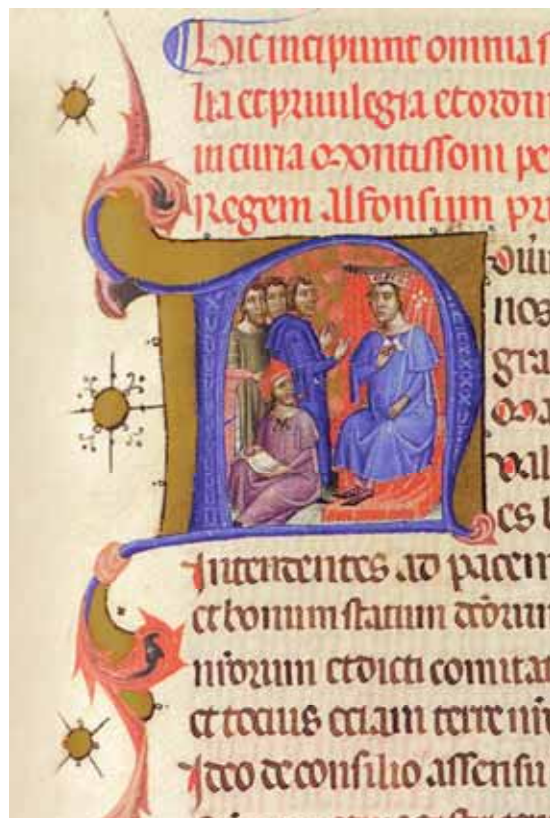 Hic incipiunt omnia
lia et priuilegia et ordin
in curia montissoni pe
Regem Alfonsum pr
N
nos
gra
Ma
val
es b
Intendentes ad pacem
et bonum statum
nrorum et dicti comitat
et tocius eciam terre nr
Ideo de consilio assensu